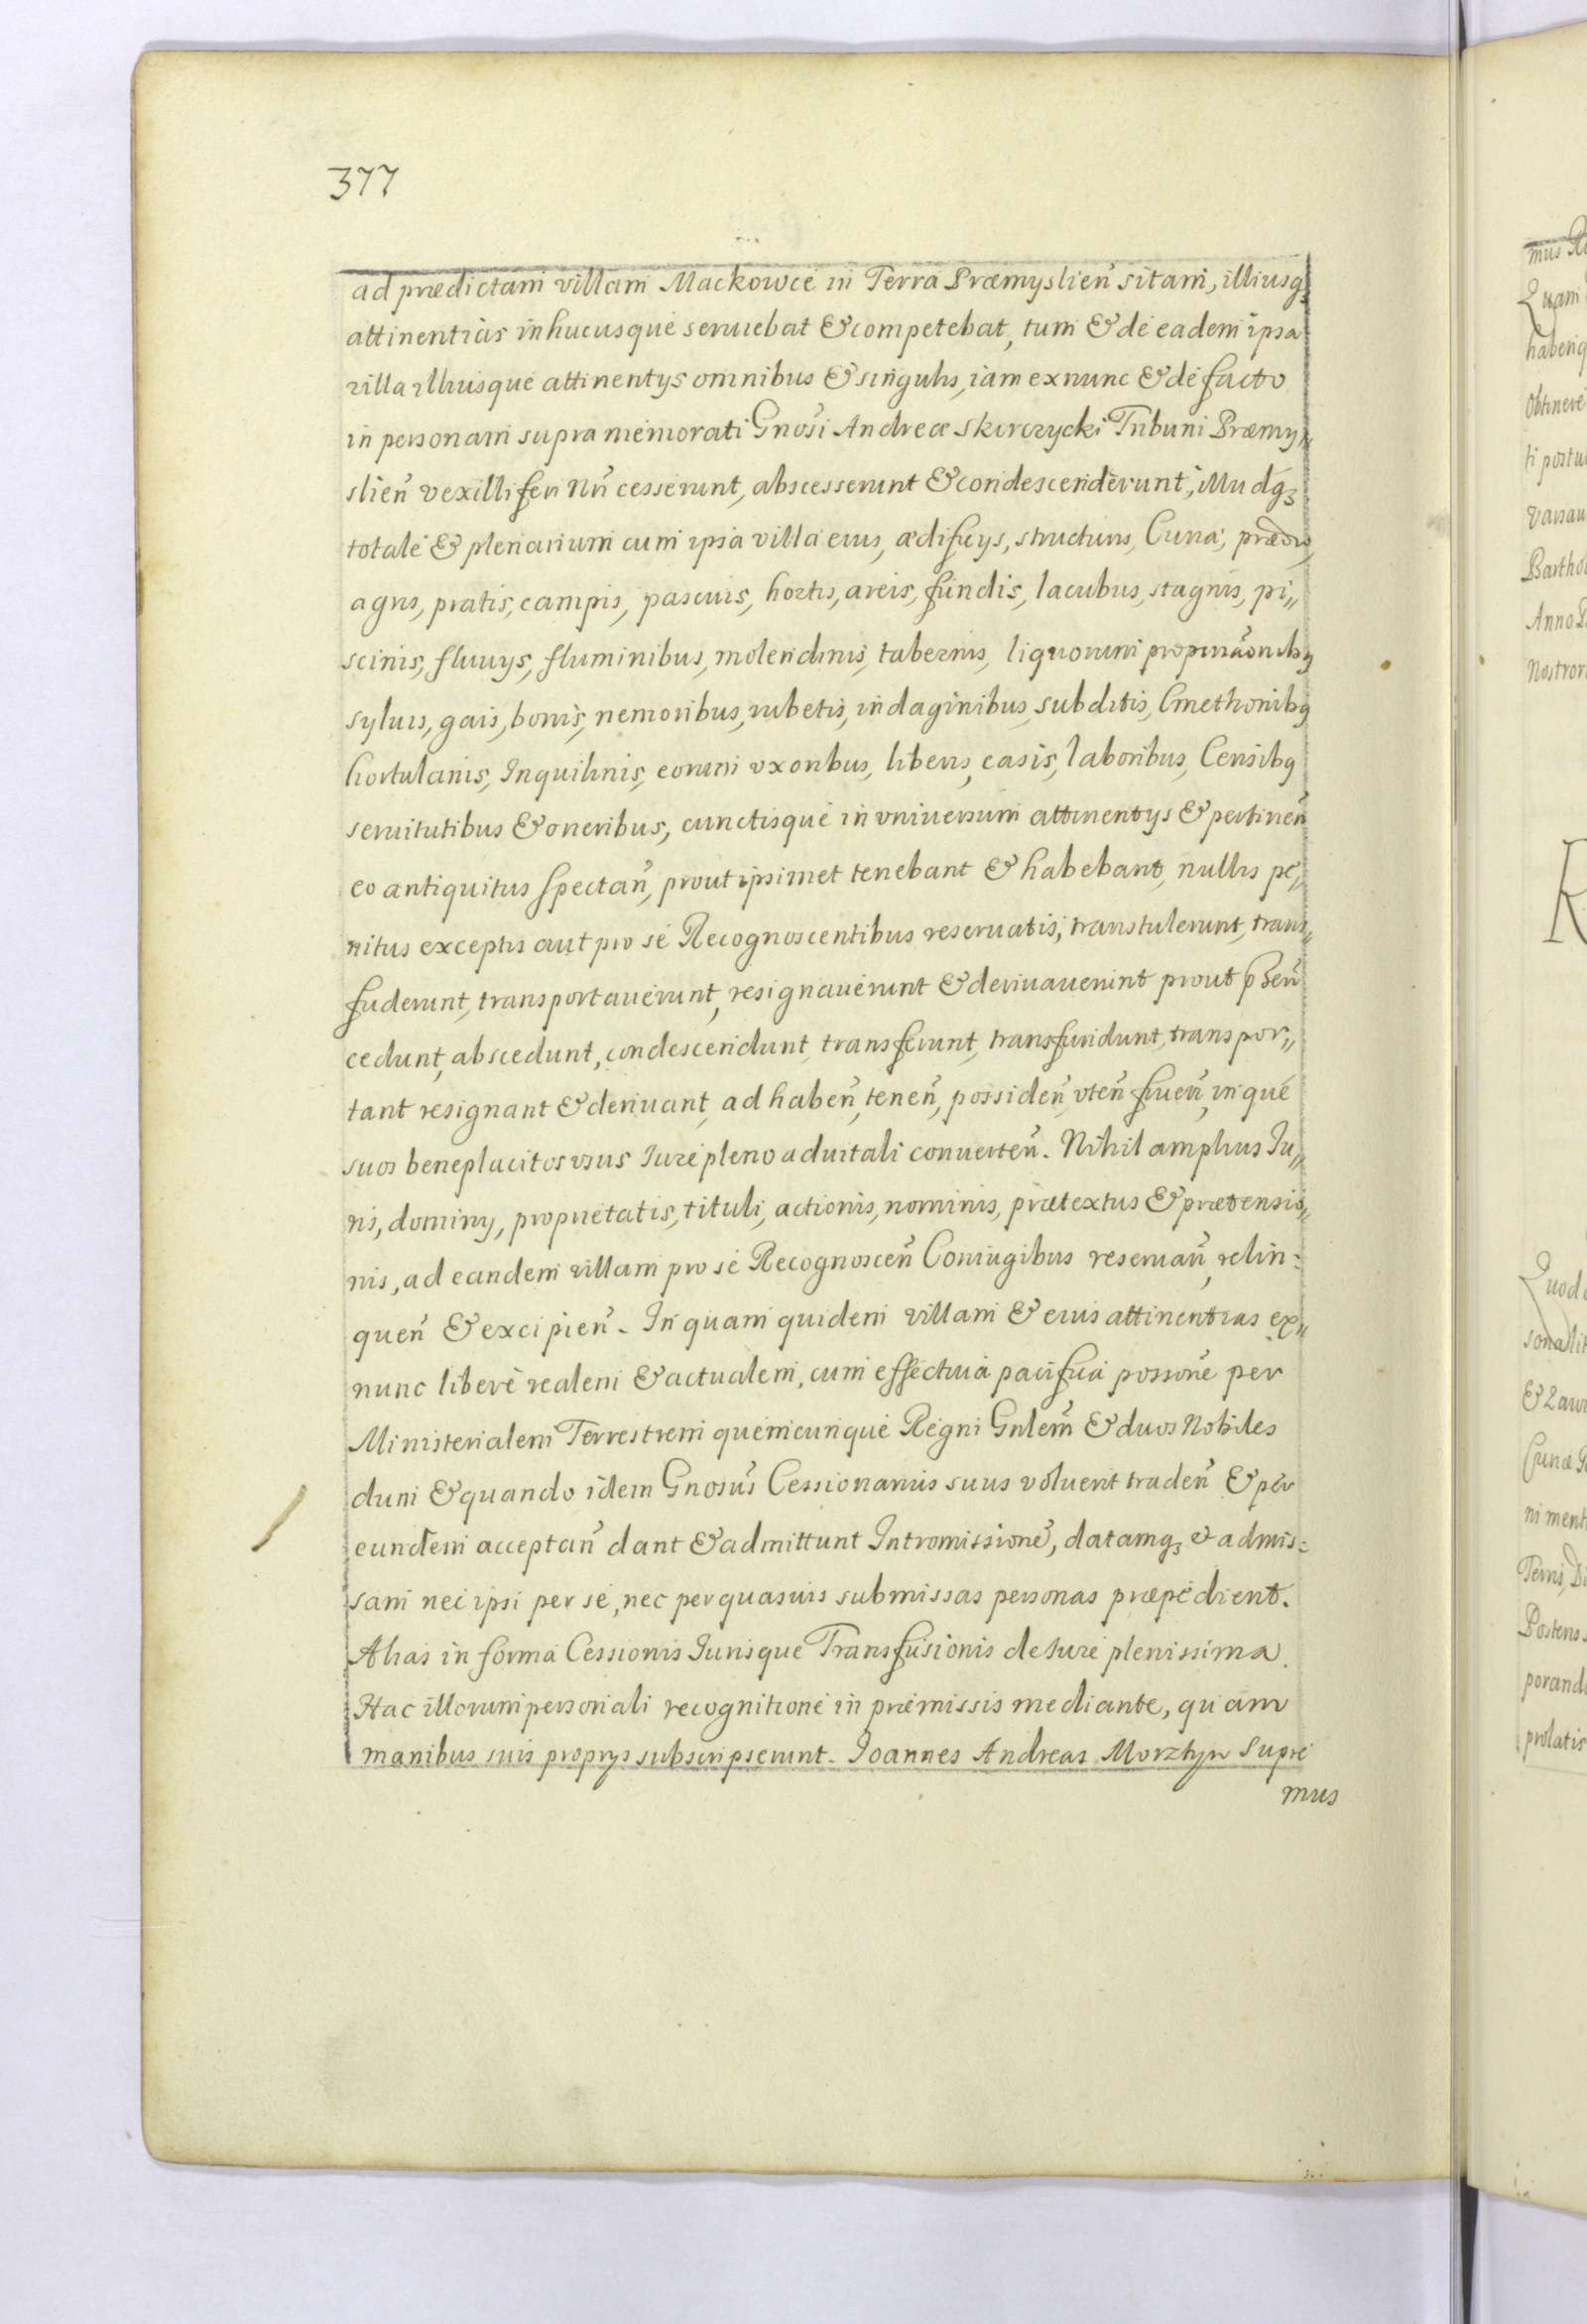 377
ad prædictam villam Mackowce in Terra Præmyslien̄ sitam, illiusq₃
attinentias inhucusque seruiebat & competebat, tum & de eadem ipsa
villa illiusque attinentys omnibus & singulis, iam ex nunc & de facto
in personam supra memorati Gnosi Andreæ Skirczycki Tribuni Præmy„
slien̄ vexilliferi Nri cesserunt, abscesserunt & condescenderunt, illudq₃
totale & plenarium cum ipsa villa eius, ædificys, structuris, Curia, prædio,
agris, pratis, campis, pascuis, hortis, areis, fundis, lacubus, stagnis, pi„
scinis, fluuys, fluminibus, molendinis, tabernis, liquorum propinaōnibq
syluis, gais, bonis, nemoribus, rubetis, indaginibus, subditis, Cmethonibq
hortulanis, Inquilinis, eorum vxoribus, liberis, casis, laboribus, Censibq
seruitutibus & oneribus, cunctisque in vniuersum attinentys & pertinen̄
eo antiquitus spectan̄, prout ipsimet tenebant & habebant, nullis pe„
nitus exceptis aut pro se Recognoscentibus reseruatis, transtulerunt, trans„
fuderunt, transportauerunt, resignauerunt & deriuauerunt prout p̄sen̄
cedunt, abscedunt, condescendunt, transferunt, transfundunt, transpor„
tant resignant & deriuant, ad haben̄, tenen̄, possiden̄, vten̄ fruen̄, in que
suos beneplacitos vsus Iure pleno aduitali conuerten̄. Nihil amplius Iu„
ris, dominy, proprietatis, tituli, actionis, nominis, prætextus & prætensio„
nis, ad eandem villam pro se Recognoscen̄ Coniugibus reseruan̄, relin:
quen̄ & excipien̄. In quam quidem villam & eius attinentias ex„
nunc libere realem & actualem, cum effectiua pacifica possone per
Ministerialem Terrestrem quemcunque Regni Gnlem & duos Nobiles
dum & quando idem Gnosus Cessionarius suus voluerit traden̄ & per
eundem acceptan̄ dant & admittunt Intromissione, datamq₃ & admis:
sam nec ipsi per se, nec per quasuis submissas personas præpedient.
Alias in forma Cessionis Iurisque Transfusionis de Iure plenissima.
Hac illorum personali recognitione in præmissis mediante, quam
manibus suis proprys subscripserunt. Joannes Andreas Morztyn Supre
mus